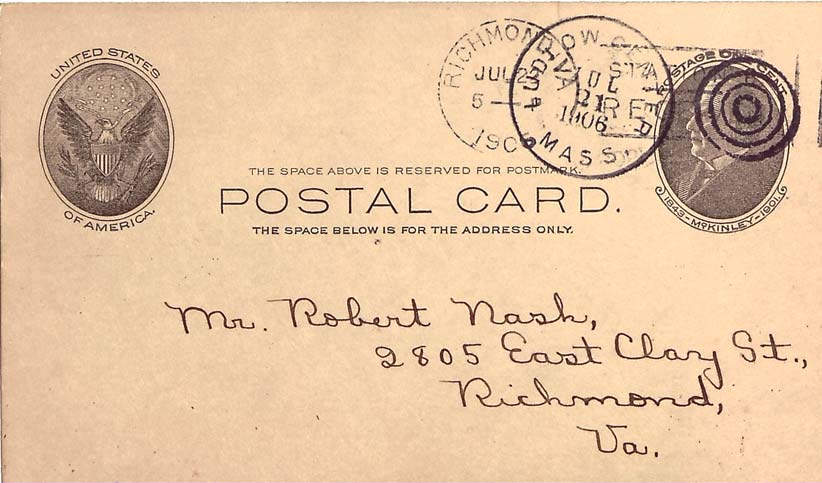 UNITED STATES
OF AMERICA.
RICHMOND
VA
JUL 2
5 —
190
LUDLOW CENTER
JUL
21
1906
MASS.
STA
REC
POSTAGE ONE CENT
1843-McKINLEY-1901.
THE SPACE ABOVE IS RESERVED FOR POSTMARK.
POSTAL CARD.
THE SPACE BELOW IS FOR THE ADDRESS ONLY.
Mr. Robert Nash,
2805 East Clay St.,
Richmond,
Va.